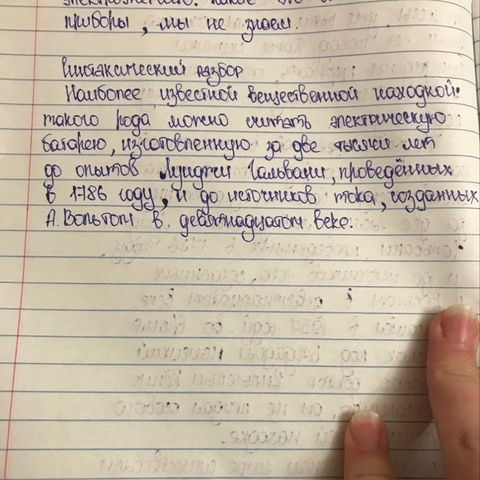 приборы, мы не знаем.
Синтаксический разбор
Наиболее известной вещественной находкой
такого рода можно считать электрическую
батарею, изготовленную за две тысячи лет
до опытов Луиджи Гальвани, проведённых
в 1786 году, и до источников тока, созданных
А. Вольтом в девятнадцатом веке.